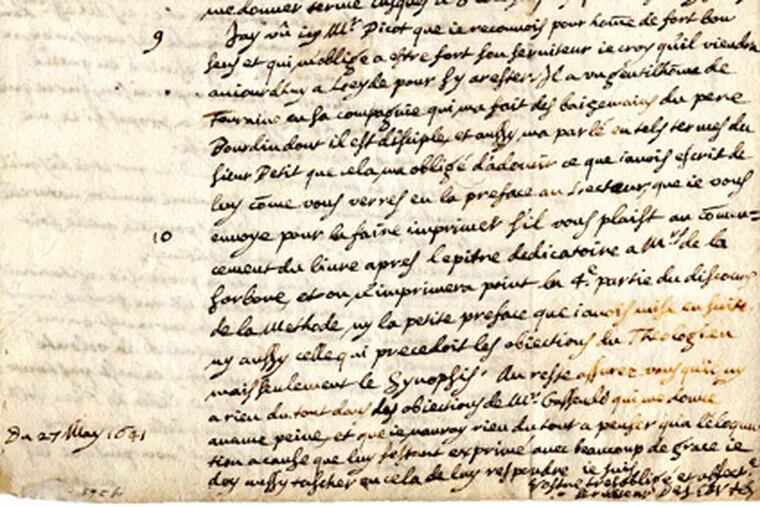 9
Jay vû icy Mr. Picot que ie reconnois pour hõme de fort bon
sens et qui m'oblige a estre fort son serviteur ie croy qu'il viendra
auiourdhuy a Leyde pour sy arester. Il a un gentilhõme de
Touraine en sa compagnie qui ma fait des baizemains du pere
Bourdin dont il est disciple, et aussy ma parlé en tels termes du
sieur Petit que cela ma obligé d'adoucir ce que iauois escrit de
luy cõme vous verres en la preface au Lecteur, que ie vous
10
envoye pour la faire imprimer s'il vous plaist au comen=
cement du liure apres l'epitre dedicatoire a Mrs de la
Sorbone, et on n'imprimera point la 4e partie du discours
de la Methode ny la petite preface que i'auois mise en suite,
ny aussy celle qui precedoit les obiections du Theologien
mais seulement le Synopsis. Au reste assurez vous qu'il ny
a rien du tout dans les obiections de Mr. Gassendi qui me donne
aucune peine, et que ie nauray rien du tout a penser qu'a l'eloqu
tion a cause que luy sestant exprimé avec beaucoup de grace ie
doy aussy tascher en cela de luy respondre ie suis
Vostre tres obligé et affect.e
serviteur Des Cartes
Du 27 May 1641